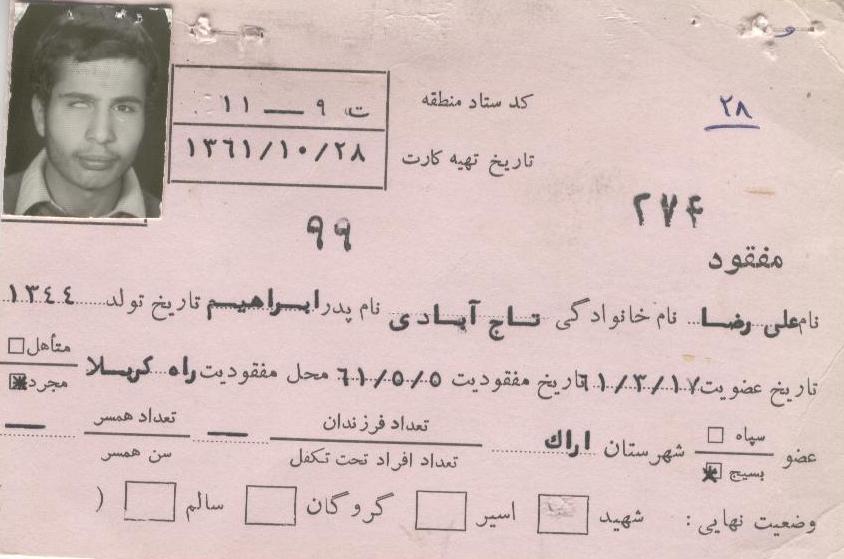 کد ستاد منطقه ت ۹ — ۱۱
۲۸
تاریخ تهیه کارت ۱۳۶۱/۱۰/۲۸
۲۷۴
۹۹
مفقود
نام علی رضا نام خانوادگی تاج آبادی نام پدر ابراهیم تاریخ تولد ۱۳۴۴
تاریخ عضویت ۶۱/۳/۱۷ تاریخ مفقودیت ۶۱/۵/۵ محل مفقودیت راه کربلا متأهل مجرد
عضو سپاه بسیج شهرستان اراک تعداد فرزندان — تعداد همسر —
تعداد افراد تحت تکفل سن همسر
وضعیت نهایی: شهید اسیر گروگان سالم (